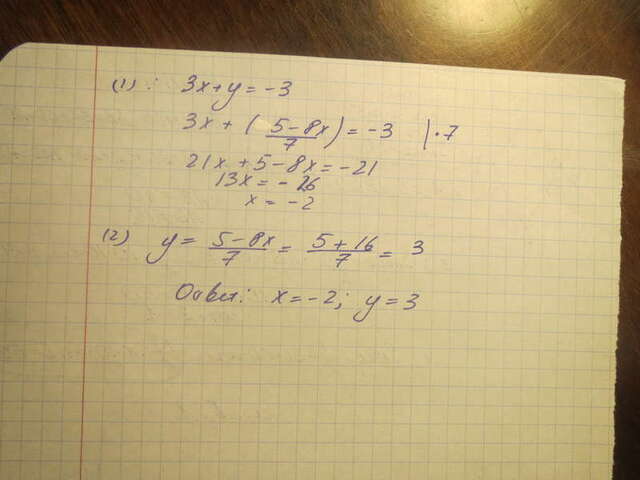 (1): 3x+y=-3
3x+(5-8x/7)=-3 |·7
21x+5-8x=-21
13x=-26
x=-2
(2) y=5-8x/7=5+16/7=3
Ответ: x=-2; y=3